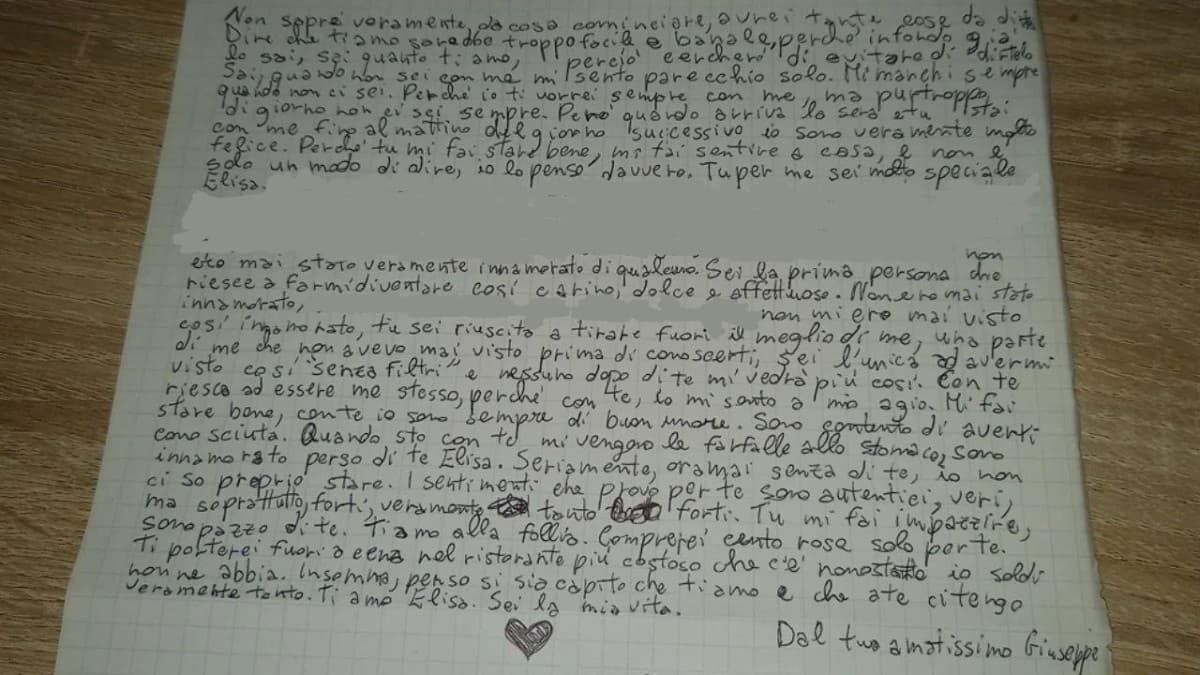 Non saprei veramente, da cosa cominciare, avrei tante cose da dirti
Dire che ti amo sarebbe troppo facile e banale, perché infondo già
lo sai, sai quanto ti amo, perciò cercherò di evitare di dirtelo
Sai, quando non sei con me mi sento parecchio solo. Mi manchi sempre
quando non ci sei. Perché io ti vorrei sempre con me, ma purtroppo
di giorno non ci sei sempre. Però quando arriva la sera e tu stai
con me fino al mattino del giorno successivo io sono veramente molto
felice. Perché tu mi fai stare bene, mi fai sentire a casa, e non è
solo un modo di dire, io lo penso davvero. Tu per me sei molto speciale
Elisa.
ero mai stato veramente innamorato di qualcuno. Sei la prima persona che
non
riesce a farmi diventare così carino, dolce e affettuoso. Non ero mai stato
innamorato, non mi ero mai visto
così innamorato, tu sei riuscita a tirare fuori il meglio di me, una parte
di me che non avevo mai visto prima di conoscerti, sei l'unica ad avermi
visto così "senza filtri" e nessuno dopo di te mi vedrà più così. Con te
riesco ad essere me stesso, perché con te, io mi sento a mio agio. Mi fai
stare bene, con te io sono sempre di buon umore. Sono contento di averti
conosciuta. Quando sto con te mi vengono le farfalle allo stomaco, sono
innamorato perso di te Elisa. Seriamente, oramai senza di te, io non
ci so proprio stare. I sentimenti che provo per te sono autentici, veri,
ma soprattutto, forti, veramente tanto forti. Tu mi fai impazzire,
sono pazzo di te. Ti amo alla follia. Comprerei cento rose solo per te.
Ti porterei fuori a cena nel ristorante più costoso che c'è nonostante io soldi
non ne abbia. Insomma, penso si sia capito che ti amo e che a te ci tengo
veramente tanto. Ti amo Elisa. Sei la mia vita.
Dal tuo amatissimo Giuseppe